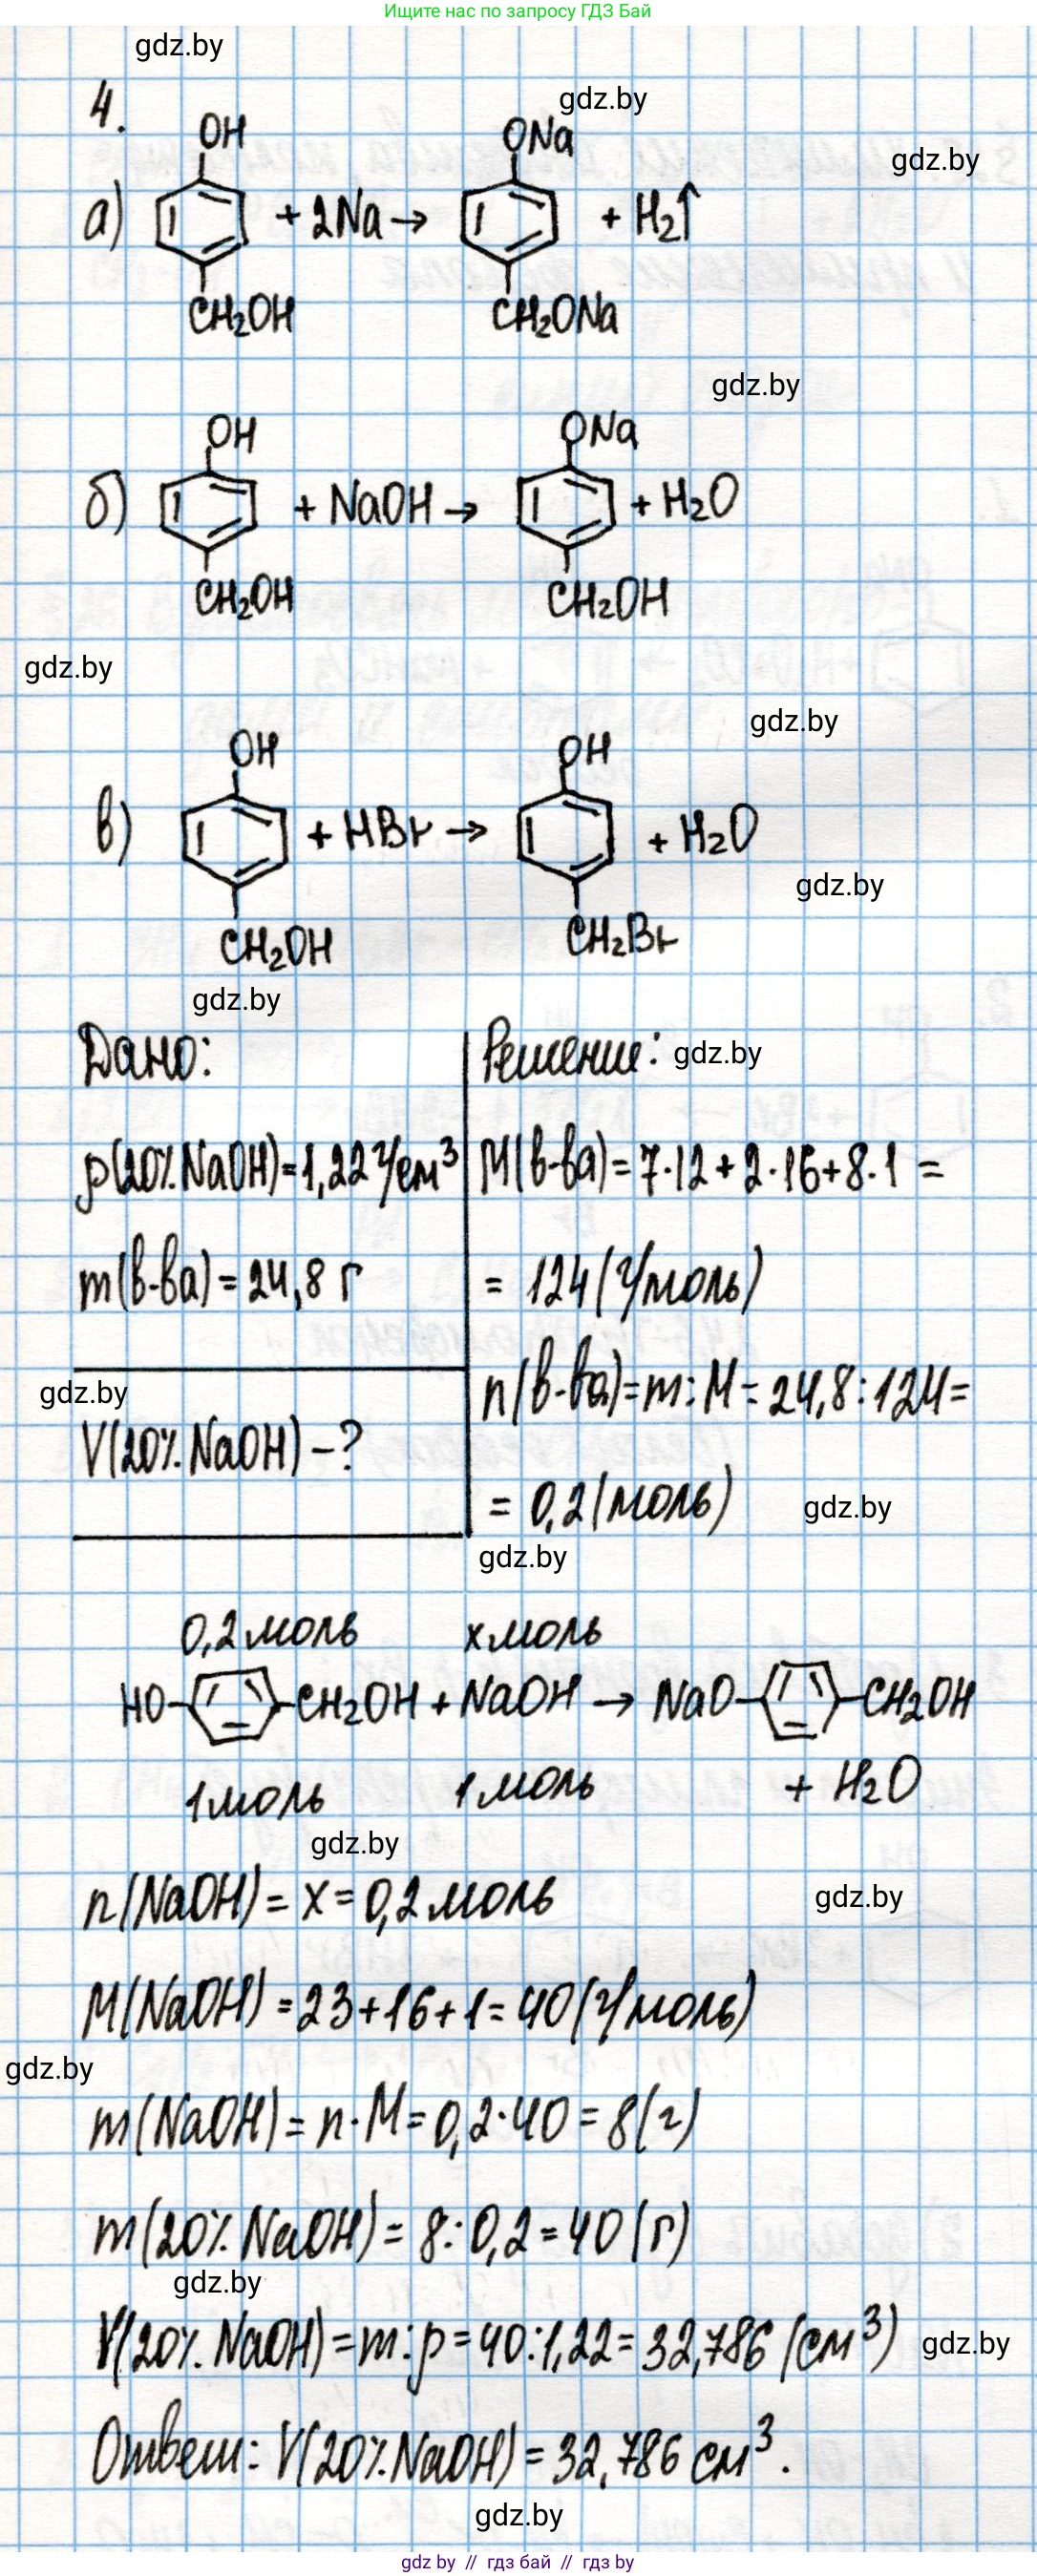 Ищите нас по запросу ГДЗ Бай
gdz.by
4.
gdz.by
OH
ONa
gdz.by
а)
+ 2Na →
+ H₂↑
CH₂OH
CH₂ONa
gdz.by
OH
ONa
б)
+ NaOH →
+ H₂O
CH₂OH
CH₂OH
gdz.by
gdz.by
OH
OH
в)
+ HBr →
+ H₂O
gdz.by
CH₂OH
CH₂Br
gdz.by
Дано:
Решение:
gdz.by
ρ(20% NaOH) = 1,22 г/см³
M(в-ва) = 7·12 + 2·16 + 8·1 =
m(в-ва) = 24,8 г
= 124 (г/моль)
gdz.by
n(в-ва) = m : M = 24,8 : 124 =
V(20% NaOH) - ?
= 0,2 (моль)
gdz.by
gdz.by
0,2 моль
x моль
HO- -CH₂OH + NaOH → NaO- -CH₂OH
1 моль
1 моль
+ H₂O
gdz.by
n(NaOH) = x = 0,2 моль
gdz.by
M(NaOH) = 23 + 16 + 1 = 40 (г/моль)
gdz.by
m(NaOH) = n · M = 0,2 · 40 = 8 (г)
m(20% NaOH) = 8 : 0,2 = 40 (г)
gdz.by
V(20% NaOH) = m : ρ = 40 : 1,22 = 32,786 (см³)
gdz.by
Ответ: V(20% NaOH) = 32,786 см³.
gdz.by
gdz by // гдз бай // гдз by